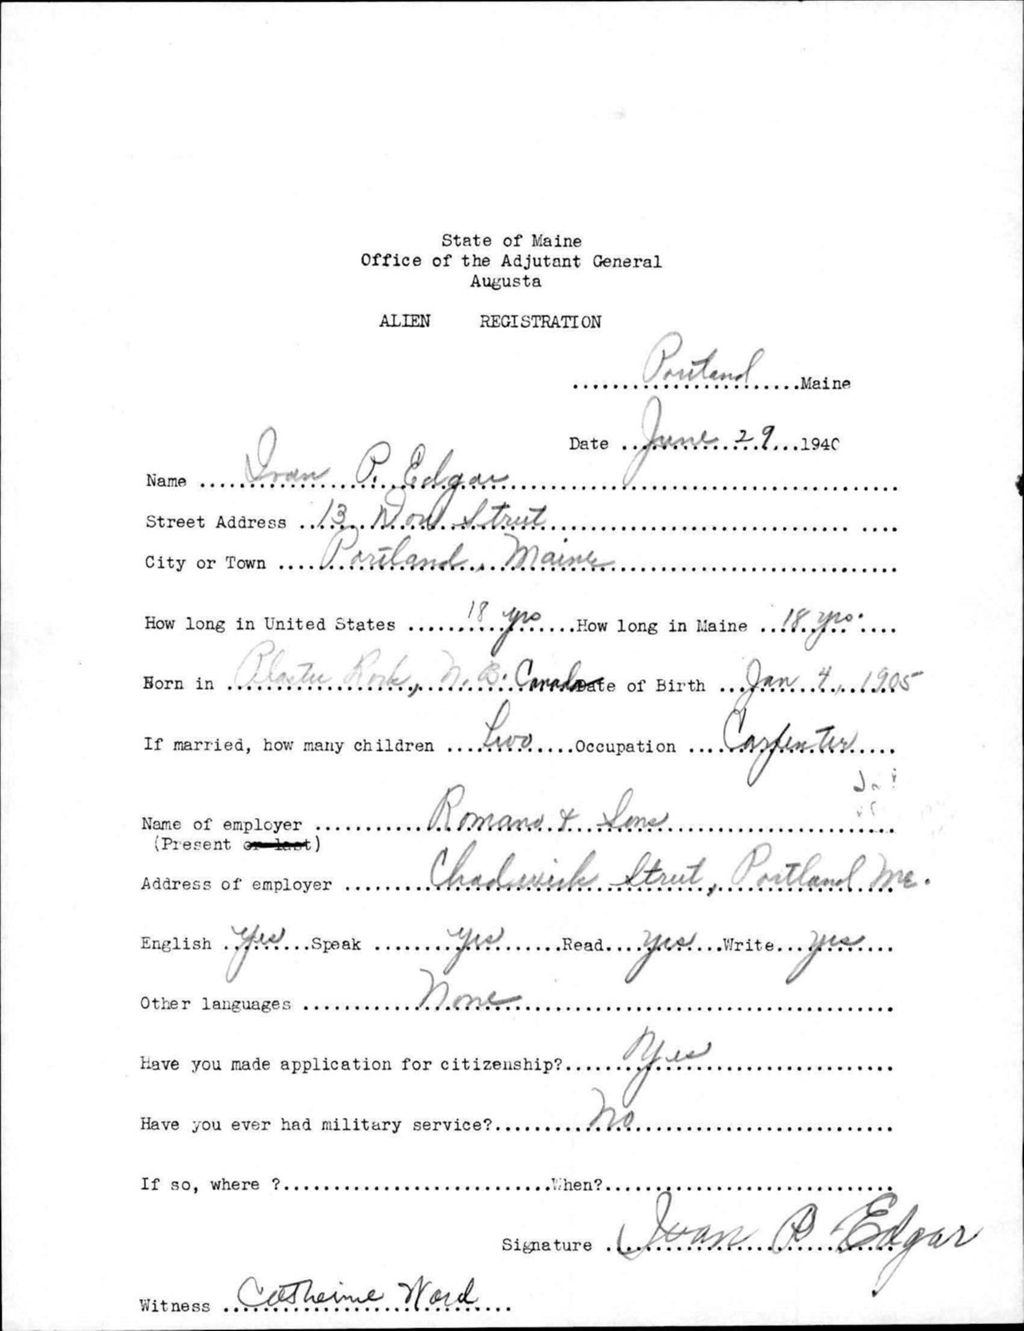 State of Maine
Office of the Adjutant General
Augusta
ALIEN REGISTRATION
Portland Maine
Date June 29 1940
Name Ivan P. Edgar
Street Address 13 Dow Street
City or Town Portland, Maine
How long in United States 18 yrs How long in Maine 18 yrs.
Born in Plaster Rock, N. B. Canada Date of Birth Jan 4, 1905
If married, how many children two Occupation Carpenter
Name of employer Romano & Sons
(Present or last)
Address of employer Chadwick Street, Portland Me.
English Yes Speak yes Read yes Write yes
Other languages None
Have you made application for citizenship? Yes
Have you ever had military service? No
If so, where ? When?
Signature Ivan P Edgar
Witness Catherine Ward